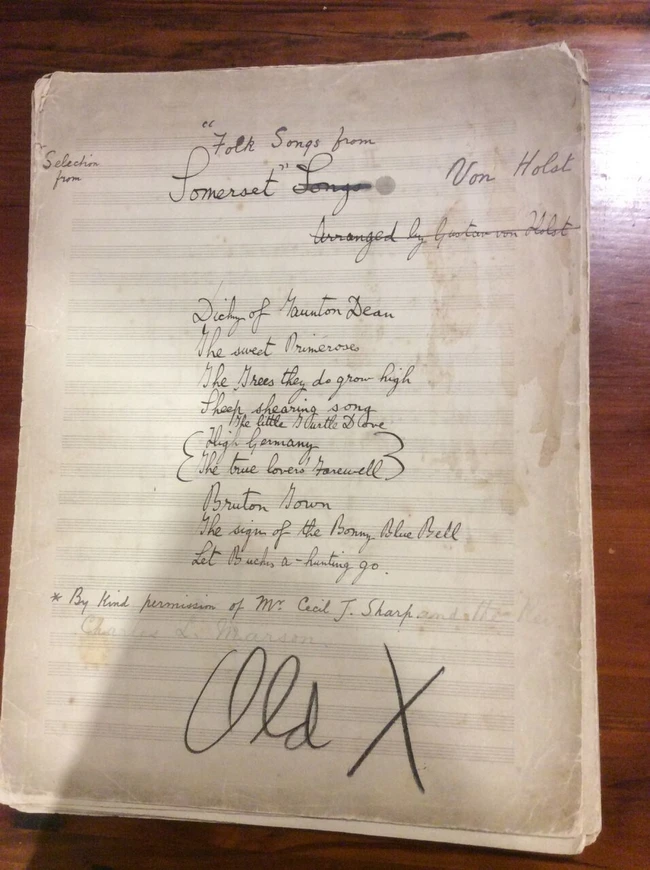 "Folk Songs from
"Selection
from
Somerset" Songs
Von Holst
Arranged by Gustav von Holst
Dicky of Taunton Dean
The sweet Primeroses
The Trees they do grow high
Sheep shearing song
The little Turtle Dove
High Germany
The true lovers Farewell
Bruton Town
The sign of the Bonny Blue Bell
Let Bucks a-hunting go.
* By Kind permission of Mr Cecil J. Sharp and
Charles L. Marson
Old X